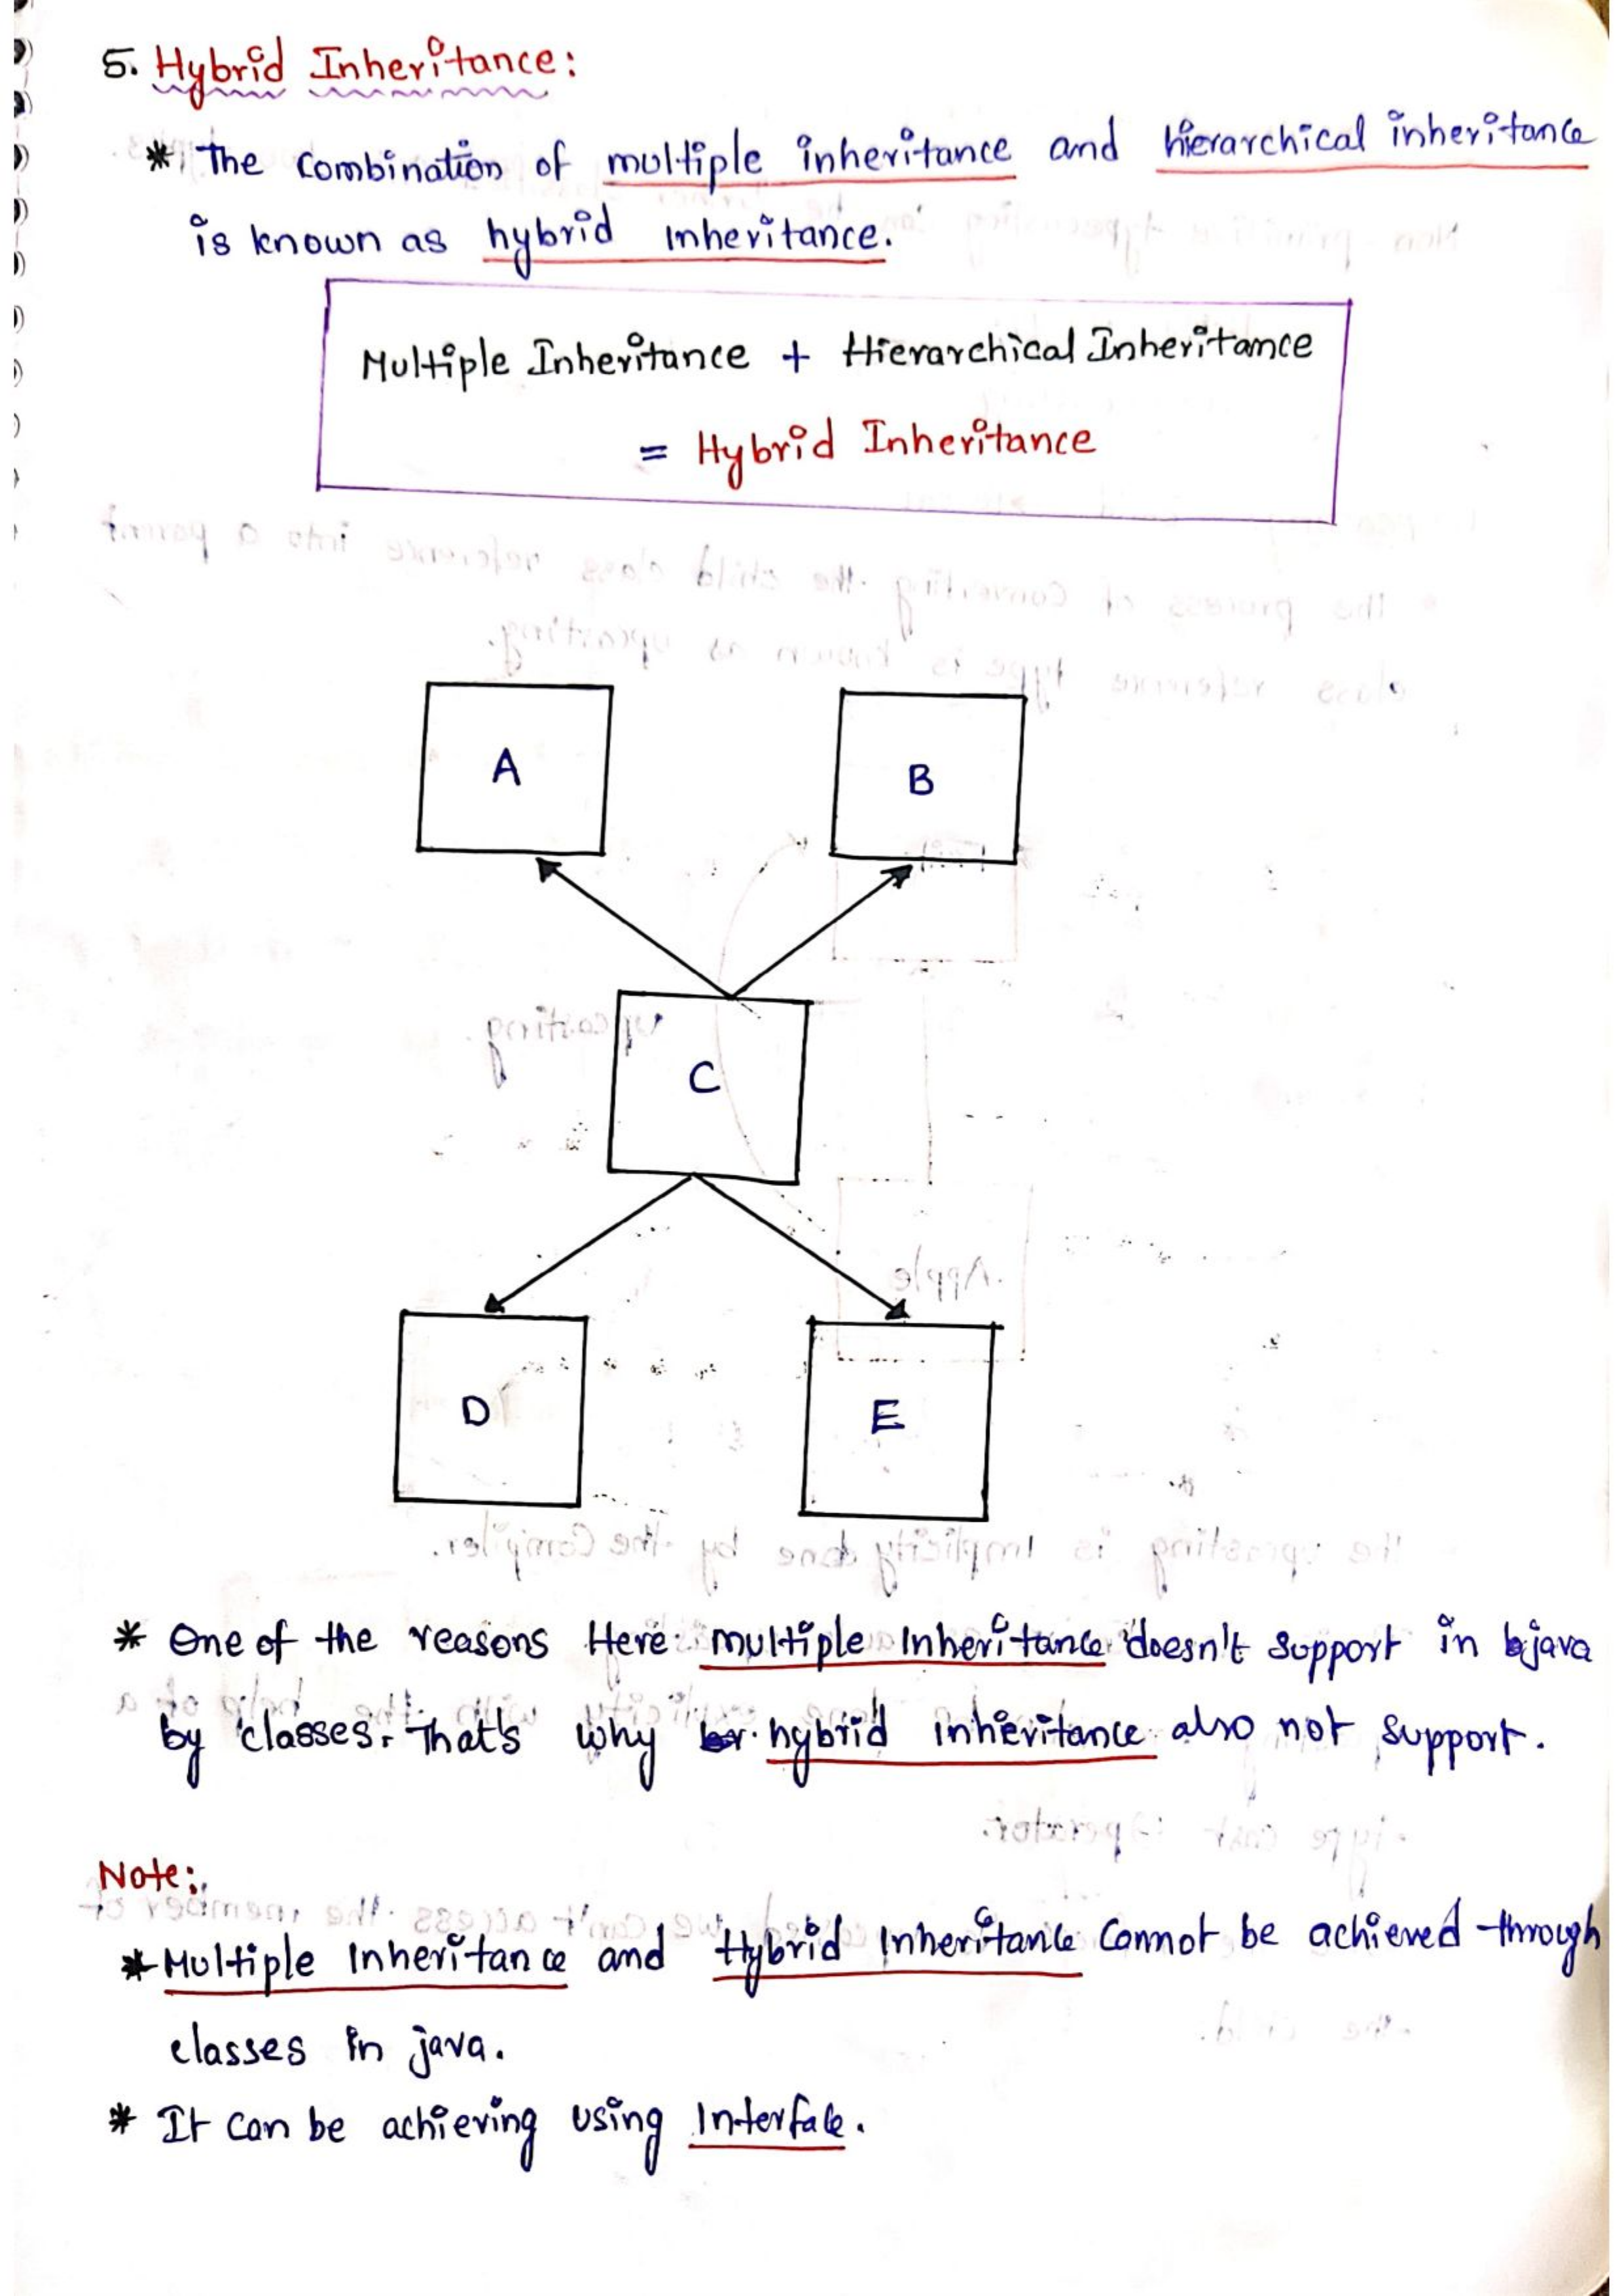 5. Hybrid Inheritance:
* The combination of multiple inheritance and hierarchical inheritance
is known as hybrid inheritance.
Multiple Inheritance + Hierarchical Inheritance
= Hybrid Inheritance
A B
C
D E
* One of the reasons Here multiple inheritance doesn't support in java
by classes. That's why hybrid inheritance also not support.
Note:
* Multiple inheritance and Hybrid inheritance cannot be achieved through
classes in java.
* It can be achieving using Interface.